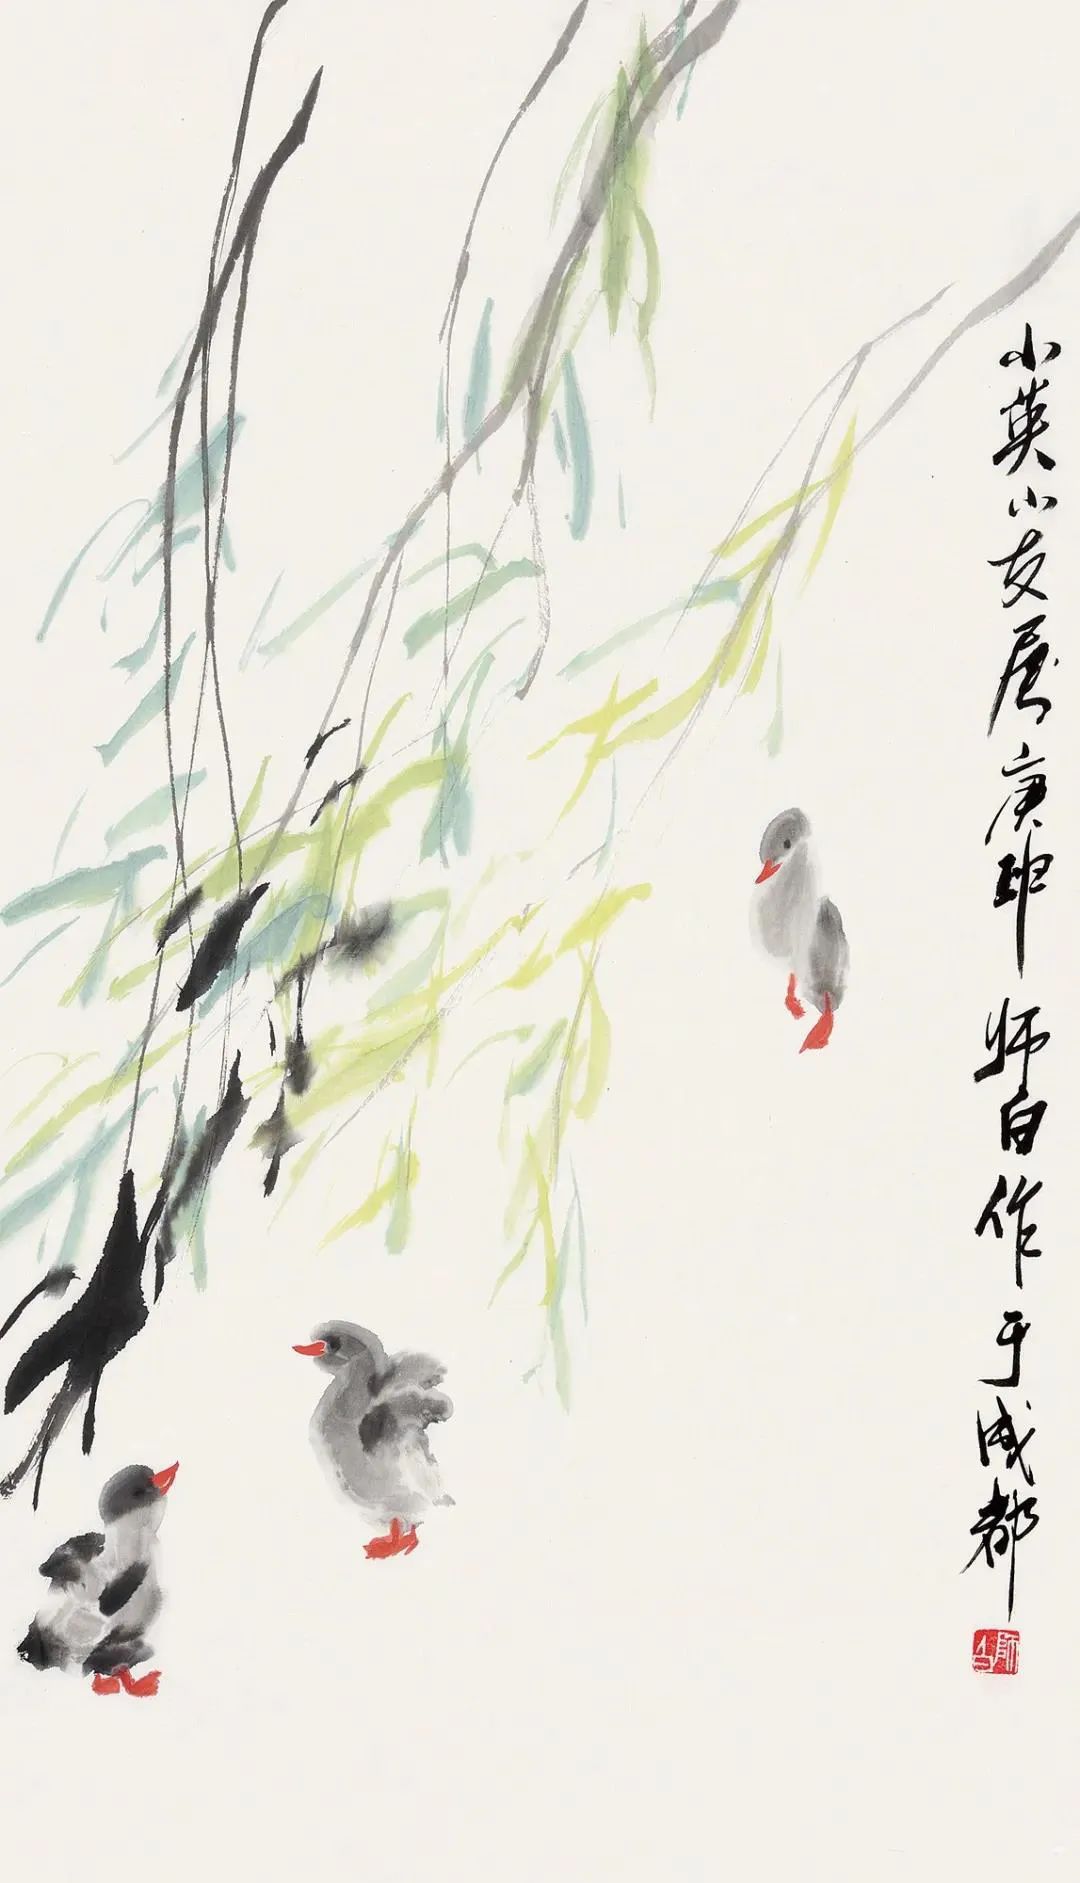 小英小友属庚申师白作于成都
師白